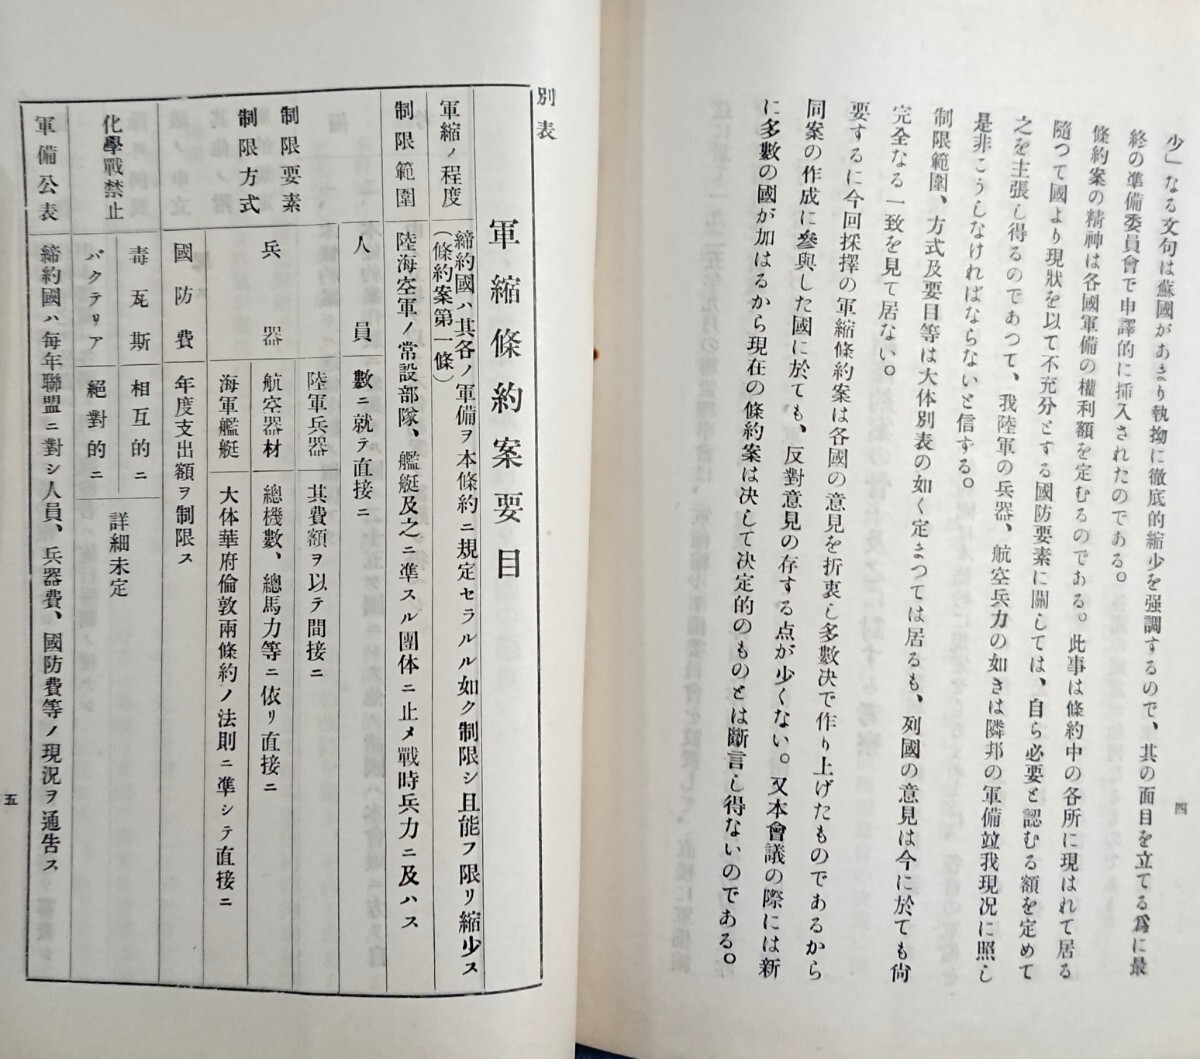 少」なる文句は蘇國があまり執拗に徹底的縮少を强調するので、其の面目を立てる爲に最
終の準備委員會で申譯的に挿入されたのである。
條約案の精神は各國軍備の權利額を定むるのである。此事は條約中の各所に現はれて居る
隨つて國より現狀を以て不充分とする國防要素に關しては、自ら必要と認むる額を定めて
之を主張し得るのであつて、我陸軍の兵器、航空兵力の如きは隣邦の軍備竝我現況に照し
是非こうしなければならないと信する。
制限範圍、方式及要目等は大体別表の如く定まつては居るも、列國の意見は今に於ても尙
完全なる一致を見て居ない。
要するに今回採擇の軍縮條約案は各國の意見を折衷し多數決で作り上げたものであるから
同案の作成に參與した國に於ても、反對意見の存する点が少くない。又本會議の際には新
に多數の國が加はるから現在の條約案は決して決定的のものとは斷言し得ないのである。
四
別表
軍縮條約案要目
軍縮ノ程度
締約國ハ其各ノ軍備ヲ本條約ニ規定セラルル如ク制限シ且能フ限リ縮少ス
(條約案第一條)
制限範圍
陸海空軍ノ常設部隊、艦艇及之ニ準スル團体ニ止メ戰時兵力ニ及ハス
制限要素
制限方式
人員
數ニ就テ直接ニ
兵器
陸軍兵器
其費額ヲ以テ間接ニ
航空器材
總機數、總馬力等ニ依リ直接ニ
海軍艦艇
大体華府倫敦兩條約ノ法則ニ準シテ直接ニ
國防費
年度支出額ヲ制限ス
化學戰禁止
毒瓦斯
相互的ニ
バクテリア
絕對的ニ
詳細未定
軍備公表
締約國ハ每年聯盟ニ對シ人員、兵器費、國防費等ノ現況ヲ通吿ス
五